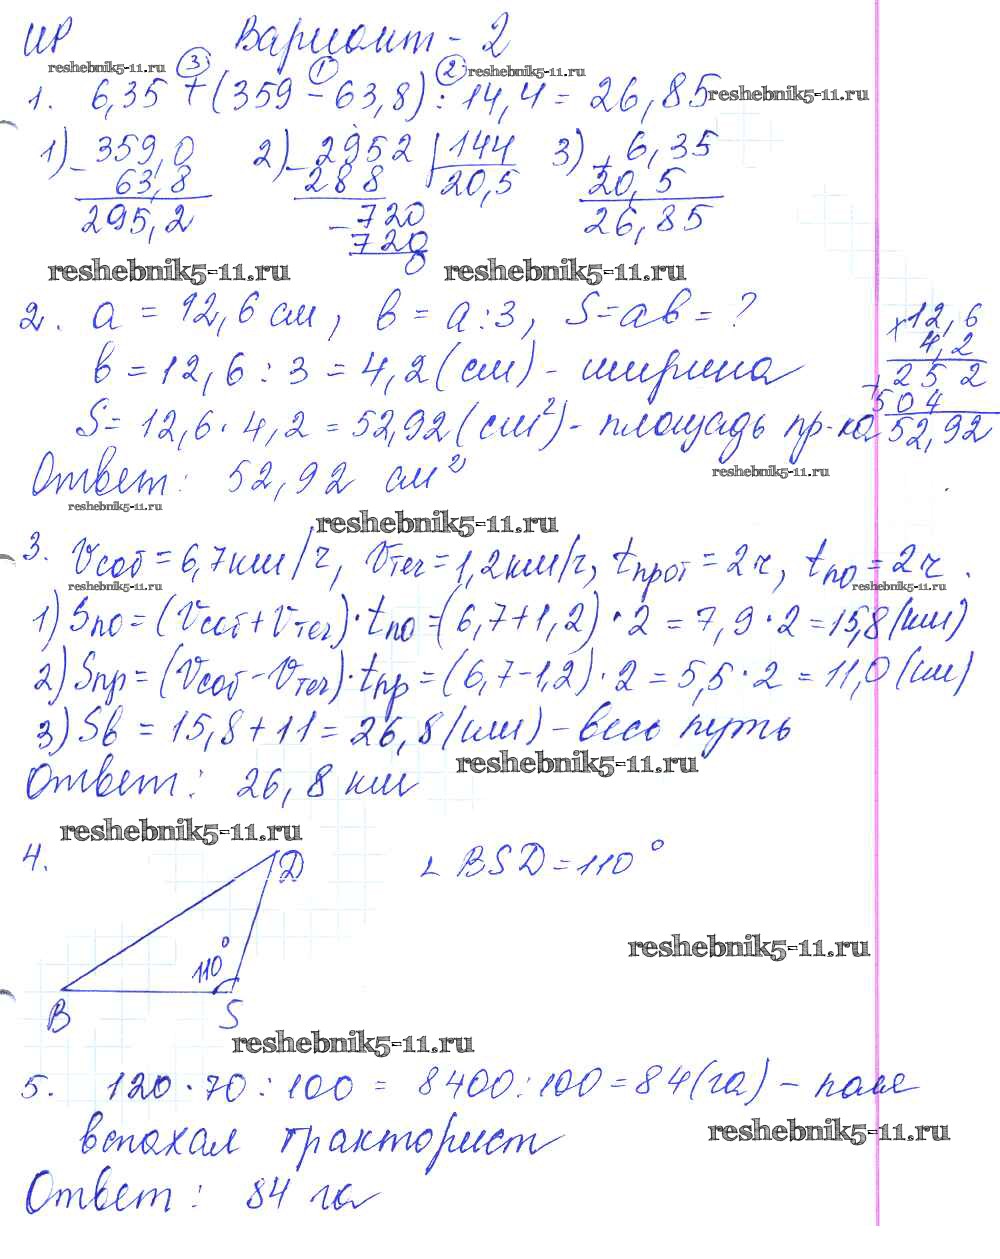 ИР Вариант - 2
reshebnik5-11.ru ③ ① ② reshebnik5-11.ru
1. 6,35 + (359 - 63,8) : 14,4 = 26,85 reshebnik5-11.ru
1) - 359,0 2) - 2952 | 144 3) + 6,35
63,8 288 20,5 20,5
295,2 - 720 26,85
720
0
reshebnik5-11.ru reshebnik5-11.ru
2. a = 12,6 см, в = а : 3, S = ав = ? × 12,6
в = 12,6 : 3 = 4,2 (см) - ширина 4,2
+ 25 2
S = 12,6 · 4,2 = 52,92 (см²) - площадь пр-ка 504
52,92
Ответ: 52,92 см² reshebnik5-11.ru
reshebnik5-11.ru reshebnik5-11.ru
3. Vсоб = 6,7 км/ч, Vтеч = 1,2 км/ч, tпрот = 2 ч, tпо = 2 ч.
reshebnik5-11.ru reshebnik5-11.ru
1) Sпо = (Vсоб + Vтеч) · tпо = (6,7 + 1,2) · 2 = 7,9 · 2 = 15,8 (км)
2) Sпр = (Vсоб - Vтеч) · tпр = (6,7 - 1,2) · 2 = 5,5 · 2 = 11,0 (км)
3) Sв = 15,8 + 11 = 26,8 (км) - весь путь
Ответ: 26,8 км reshebnik5-11.ru
reshebnik5-11.ru
4. D ∠ BSD = 110°
reshebnik5-11.ru
110°
B S
reshebnik5-11.ru
5. 120 · 70 : 100 = 8400 : 100 = 84 (га) - поле
вспахал тракторист reshebnik5-11.ru
Ответ: 84 га